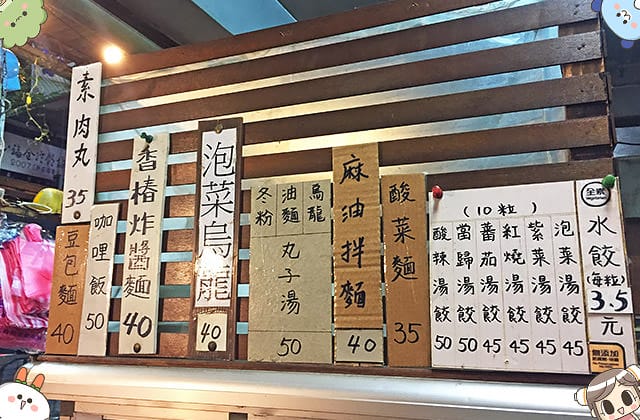 素肉丸
35
豆包麵
40
咖哩飯
50
香椿炸醬麵
40
泡菜烏龍
40
冬粉
油麵
烏龍
丸子湯
50
麻油拌麵
40
酸菜麵
35
(10粒)
酸辣湯餃
50
當歸湯餃
50
蕃茄湯餃
45
紅燒湯餃
45
紫菜湯餃
45
泡菜湯餃
45
全素
水餃
(每粒)
3.5
元
無添加